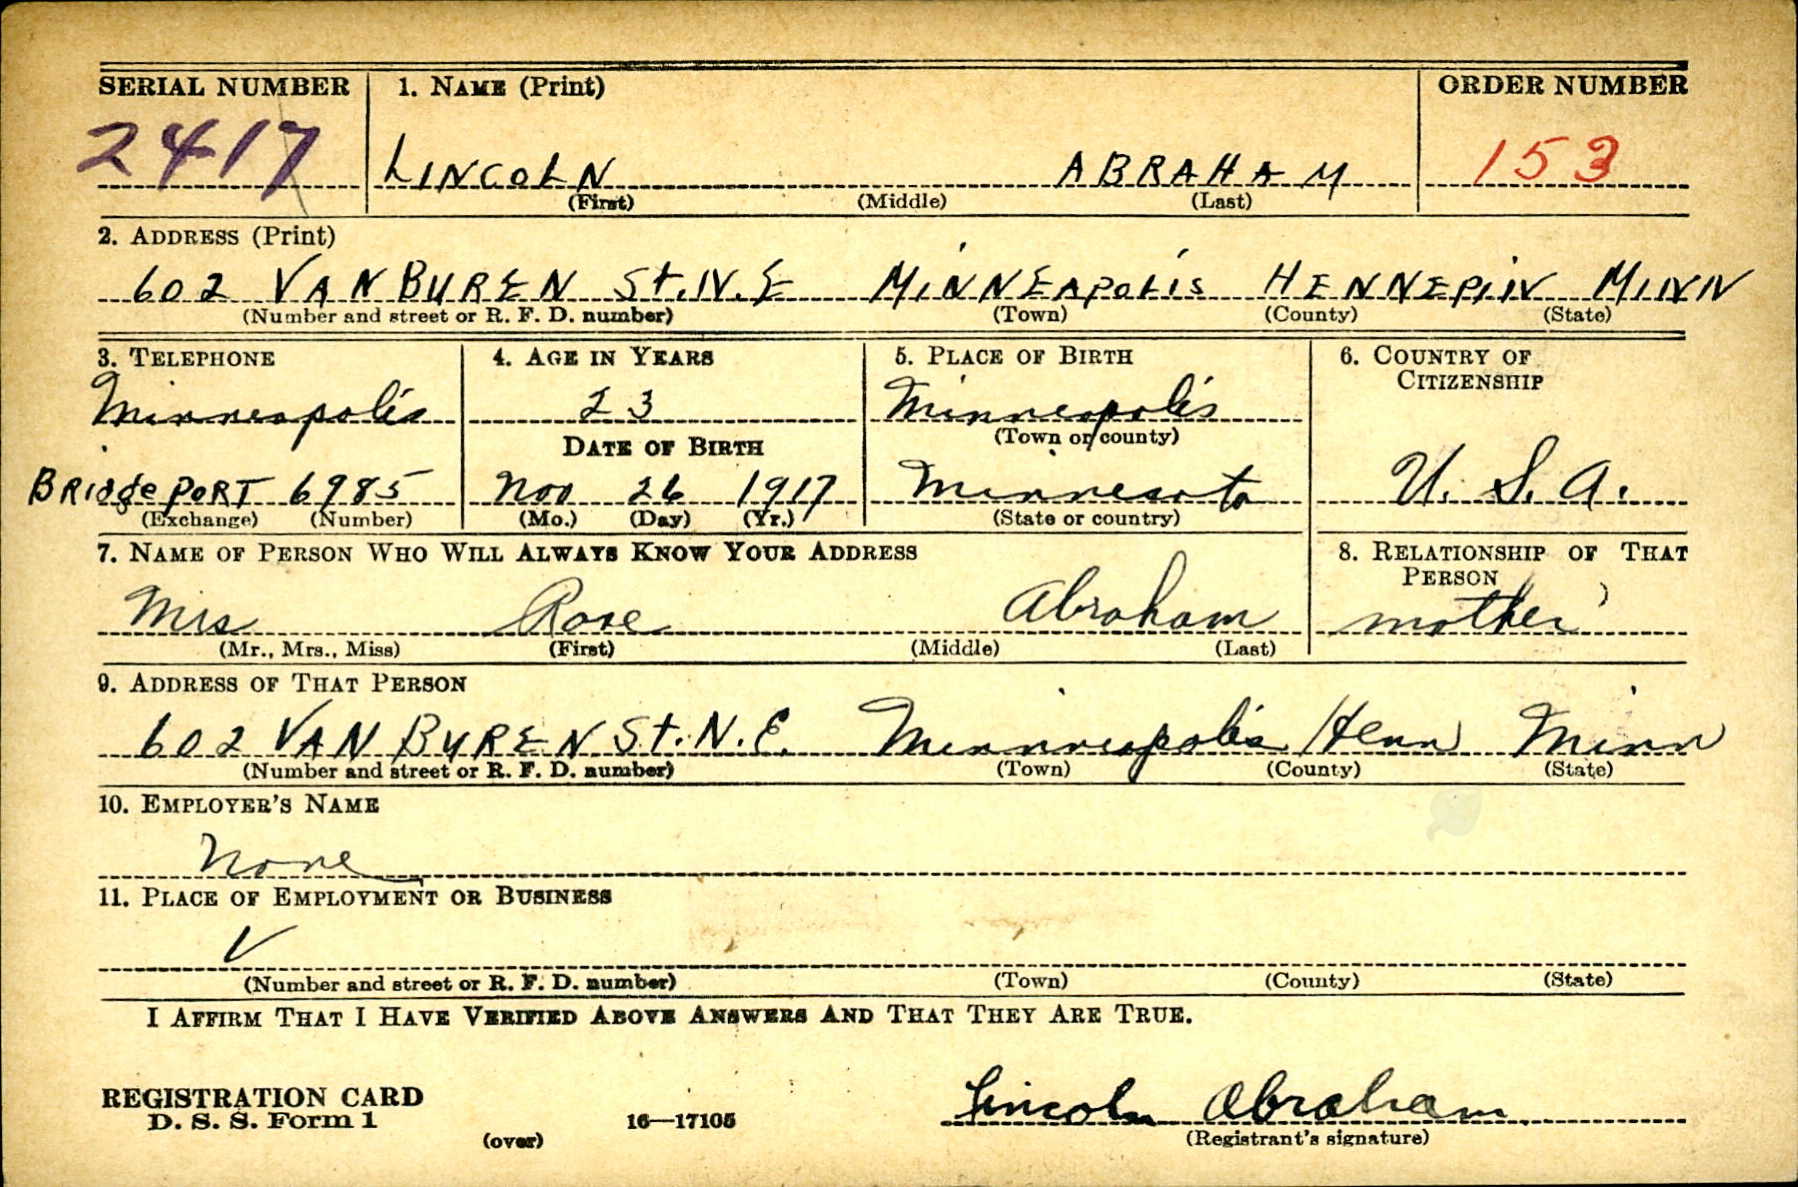 SERIAL NUMBER 1. NAME (Print) ORDER NUMBER
2417 LINCOLN ABRAHAM 153
(First) (Middle) (Last)
2. ADDRESS (Print)
602 VAN BUREN St. N.E MINNEAPOLIS HENNEPIN MINN
(Number and street or R. F. D. number) (Town) (County) (State)
3. TELEPHONE 4. AGE IN YEARS 5. PLACE OF BIRTH 6. COUNTRY OF
CITIZENSHIP
Minneapolis 23 Minneapolis
DATE OF BIRTH (Town or county)
BRidgePORT 6985 Nov 26 1917 Minnesota U. S. A.
(Exchange) (Number) (Mo.) (Day) (Yr.) (State or country)
7. NAME OF PERSON WHO WILL ALWAYS KNOW YOUR ADDRESS 8. RELATIONSHIP OF THAT
PERSON
Mrs Rose Abraham mother
(Mr., Mrs., Miss) (First) (Middle) (Last)
9. ADDRESS OF THAT PERSON
602 VAN BUREN St. N.E. Minneapolis Henn Minn
(Number and street or R. F. D. number) (Town) (County) (State)
10. EMPLOYER'S NAME
None
11. PLACE OF EMPLOYMENT OR BUSINESS
(Number and street or R. F. D. number) (Town) (County) (State)
I AFFIRM THAT I HAVE VERIFIED ABOVE ANSWERS AND THAT THEY ARE TRUE.
REGISTRATION CARD
D. S. S. Form 1 16—17105 Lincoln Abraham
(over) (Registrant's signature)